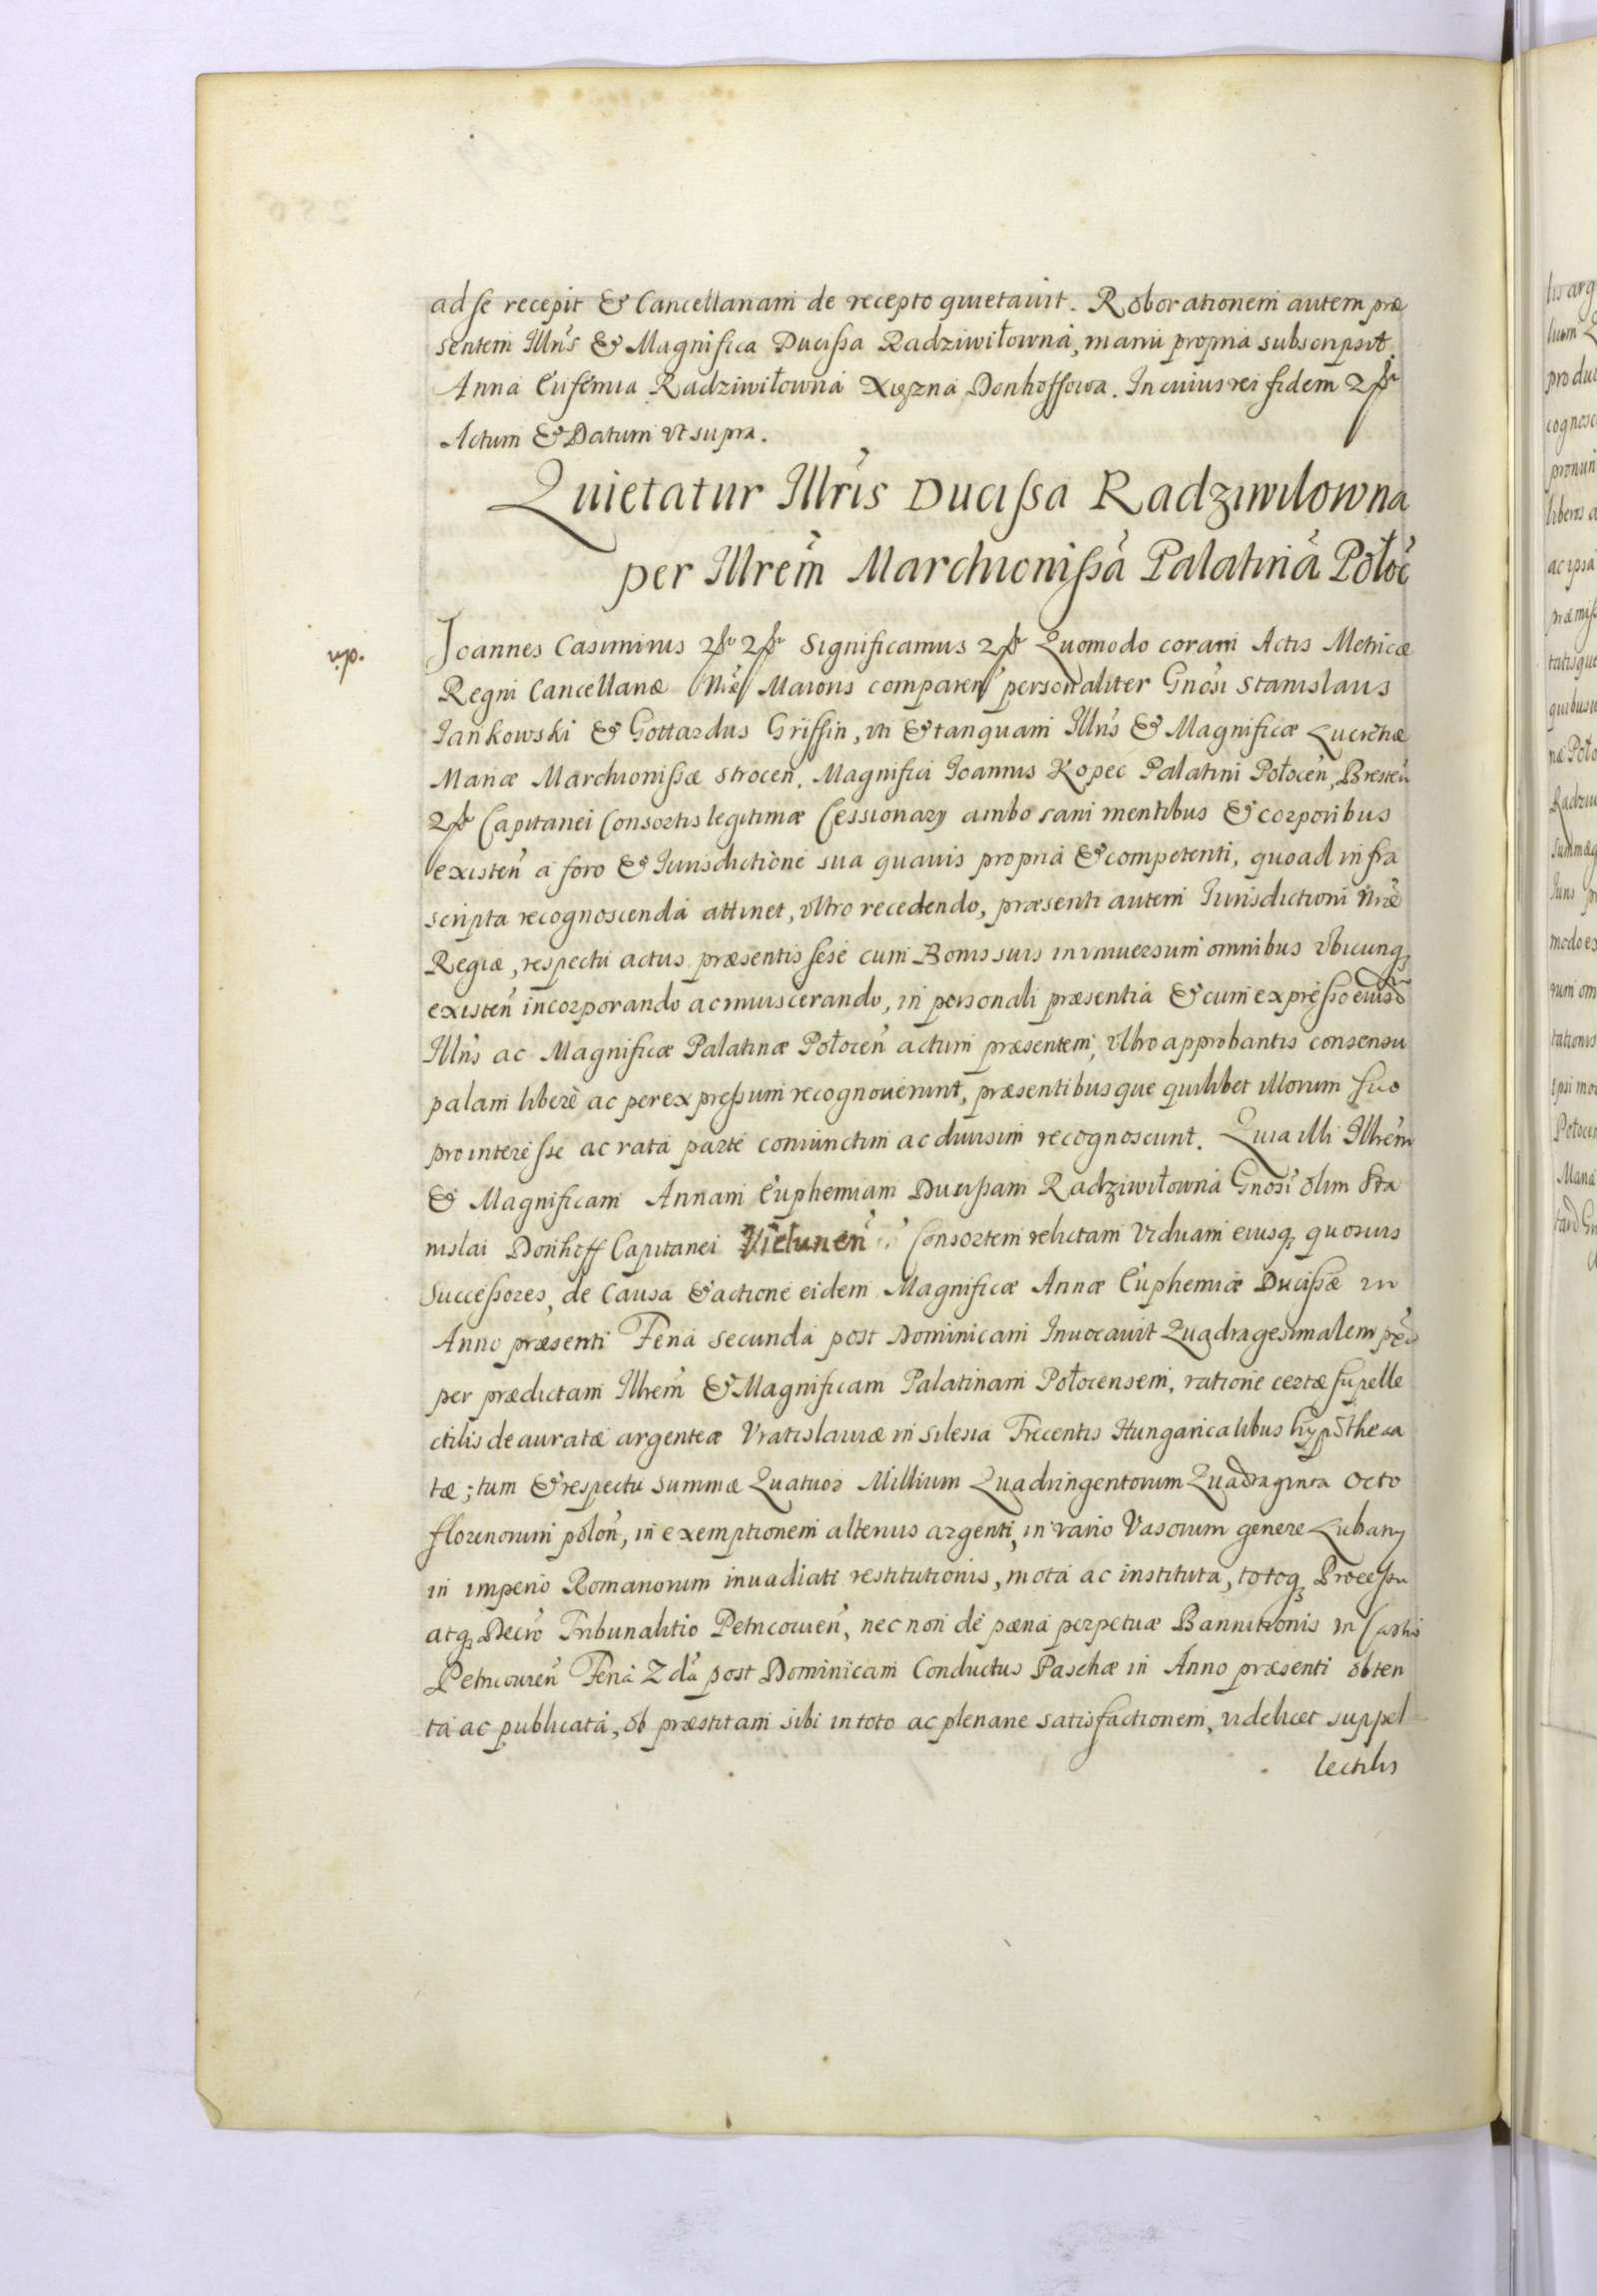 ad se recepit & Cancellariam de recepto quietavit. Roborationem autem præ
sentem Illris & Magnifica Ducissa Radziwiłowna, manu propria subscripsit.
Anna Eufemia Radziwiłowna Xiężna Donhoffowa. In cuius rei fidem &c
Actum & Datum vt supra.
Quietatur Illris Ducissa Radziwilowna
per Illrem Marchionissã Palatinã Połoc̃
Joannes Casimirus &c &c Significamus &c Quomodo coram Actis Metricæ
Regni Cancellariæ Nræ Maioris comparen̄ personaliter Gnosi Stanislaus
Jankowski & Gottardus Griffin, vti & tanquam Illris & Magnificæ Lucretiæ
Mariæ Marchionissæ Strocen̄. Magnifici Joannis Kopec Palatini Połocen̄, Bresten̄
&c Capitanei Consortis legitimæ Cessionarij ambo sani mentibus & corporibus
existen̄ a foro & Iurisdictione sua quavis propria & competenti, quoad infra
scripta recognoscenda attinet, vltro recedendo, præsenti autem Iurisdictioni Nræ
Regiæ, respectu actus præsentis sese cum Bonis suis in vniversum omnibus vbicunq,
existen̄ incorporando ac inviscerando, in personali præsentia & cum expresso eiusd̃
Illris ac Magnificæ Palatinæ Połocen̄ actum præsentem, vltro approbantis consensu
palam liberè ac per expressum recognoverunt, præsentibusque quilibet illorum suo
pro interesse ac rata parte coniunctim ac divisim recognoscunt. Quia illi Illrem
& Magnificam Annam Euphemiam Ducissam Radziwiłowna Gnosi olim Sta
nislai Donhoff Capitanei Vielunen̄ Consortem relictam Viduam eiusq, quosvis
Successores, de Causa & actione eidem Magnificæ Annæ Euphemiæ Ducissæ in
Anno præsenti Feria secunda post Dominicam Invocavit Quadragesimalem
per prædictam Illrem & Magnificam Palatinam Połocensem, ratione certæ supelle
ctilis deauratæ argenteæ Vratislaviæ in Silesia Trecentis Hungaricalibus hypotheca
tæ; tum & respectu summæ Quatuor Millium Quadringentorum Quadraginta Octo
florenorum polon̄, in exemptionem alterius argenti, in vario Vasorum genere
in imperio Romanorum invadiati restitutionis, mota ac instituta, totoq, Processu
atq, Decro Tribunalitio Petricovien̄, nec non de pæna perpetuæ Bannitionis in Castris
Petricovien̄ Feria 2da post Dominicam Conductus Paschæ in Anno præsenti obten
ta ac publicata, ob præstitam sibi in toto ac plenane satisfactionem, videlicet suppel
lectilis